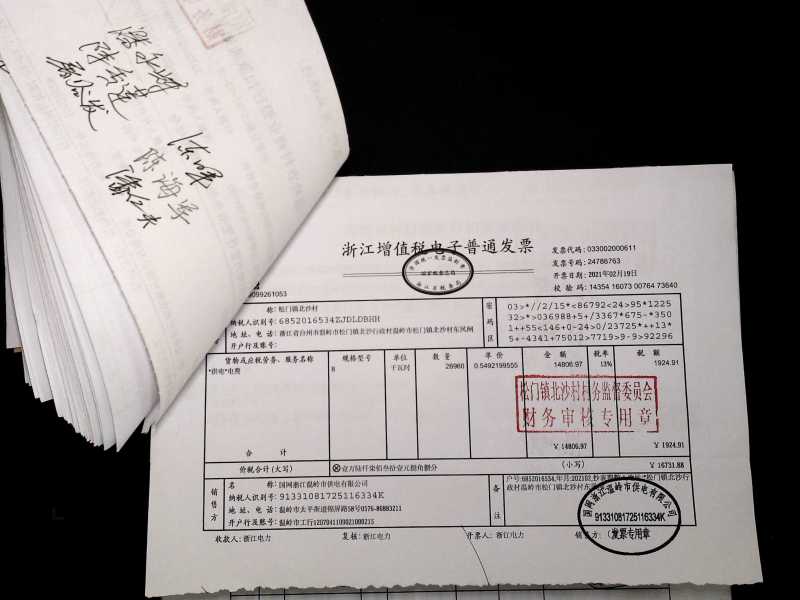 陈海军
浙江增值税电子普通发票
发票代码: 033002000611
发票号码: 24786763
开票日期: 2021年02月19日
校 验 码: 14354 16073 00764 73640
099261053
称: 松门镇北沙村
纳税人识别号: 6852016534ZJDLDBHH
地 址、电 话: 浙江省台州市温岭市松门镇北沙行政村温岭市松门镇北沙村东风闸
开户行及账号:
密码区
03>*//2/15*<86792<24>95*1225
32>*>036988+5+/3367*675-*350
1++55<146+0-24>0/23725*++13*
5+-4341+75012>7719>9-9>92296
货物或应税劳务、服务名称 规格型号 单位 数 量 单 价 金 额 税率 税 额
*供电*电费 千瓦时 26960 0.5492199555 14806.97 13% 1924.91
松门镇北沙村村务监督委员会
财务审核专用章
合 计 ¥ 14806.97 ¥ 1924.91
价税合计(大写) ⊗壹万陆仟柒佰叁拾壹元捌角捌分 (小写) ¥ 16731.88
销售方
名 称: 国网浙江温岭市供电有限公司
纳税人识别号: 91331081725116334K
地 址、电 话: 温岭市太平街道锦屏路58号0576-86883211
开户行及账号: 温岭市工行1207041109021000215
备注
户号:6852016534,年月:202102,
政村温岭市松门镇北沙村东
国网浙江温岭市供电有限公司
91331081725116334K
发票专用章
收款人: 浙江电力 复核: 浙江电力 开票人: 浙江电力 销售方: (章)